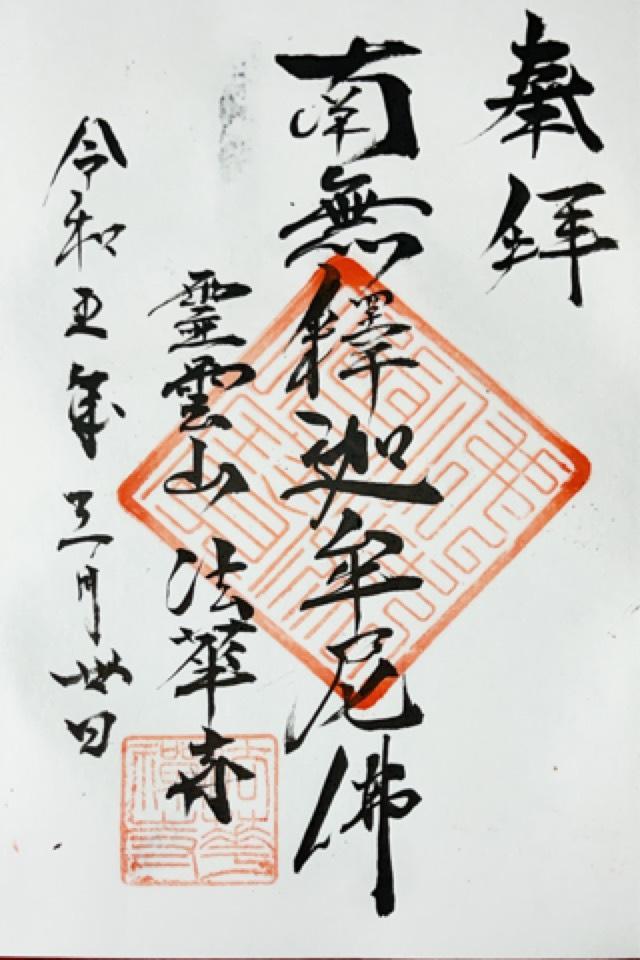 奉拝
南無釋迦牟尼佛
靈雲山 法華寺
令和五年 三月廿日